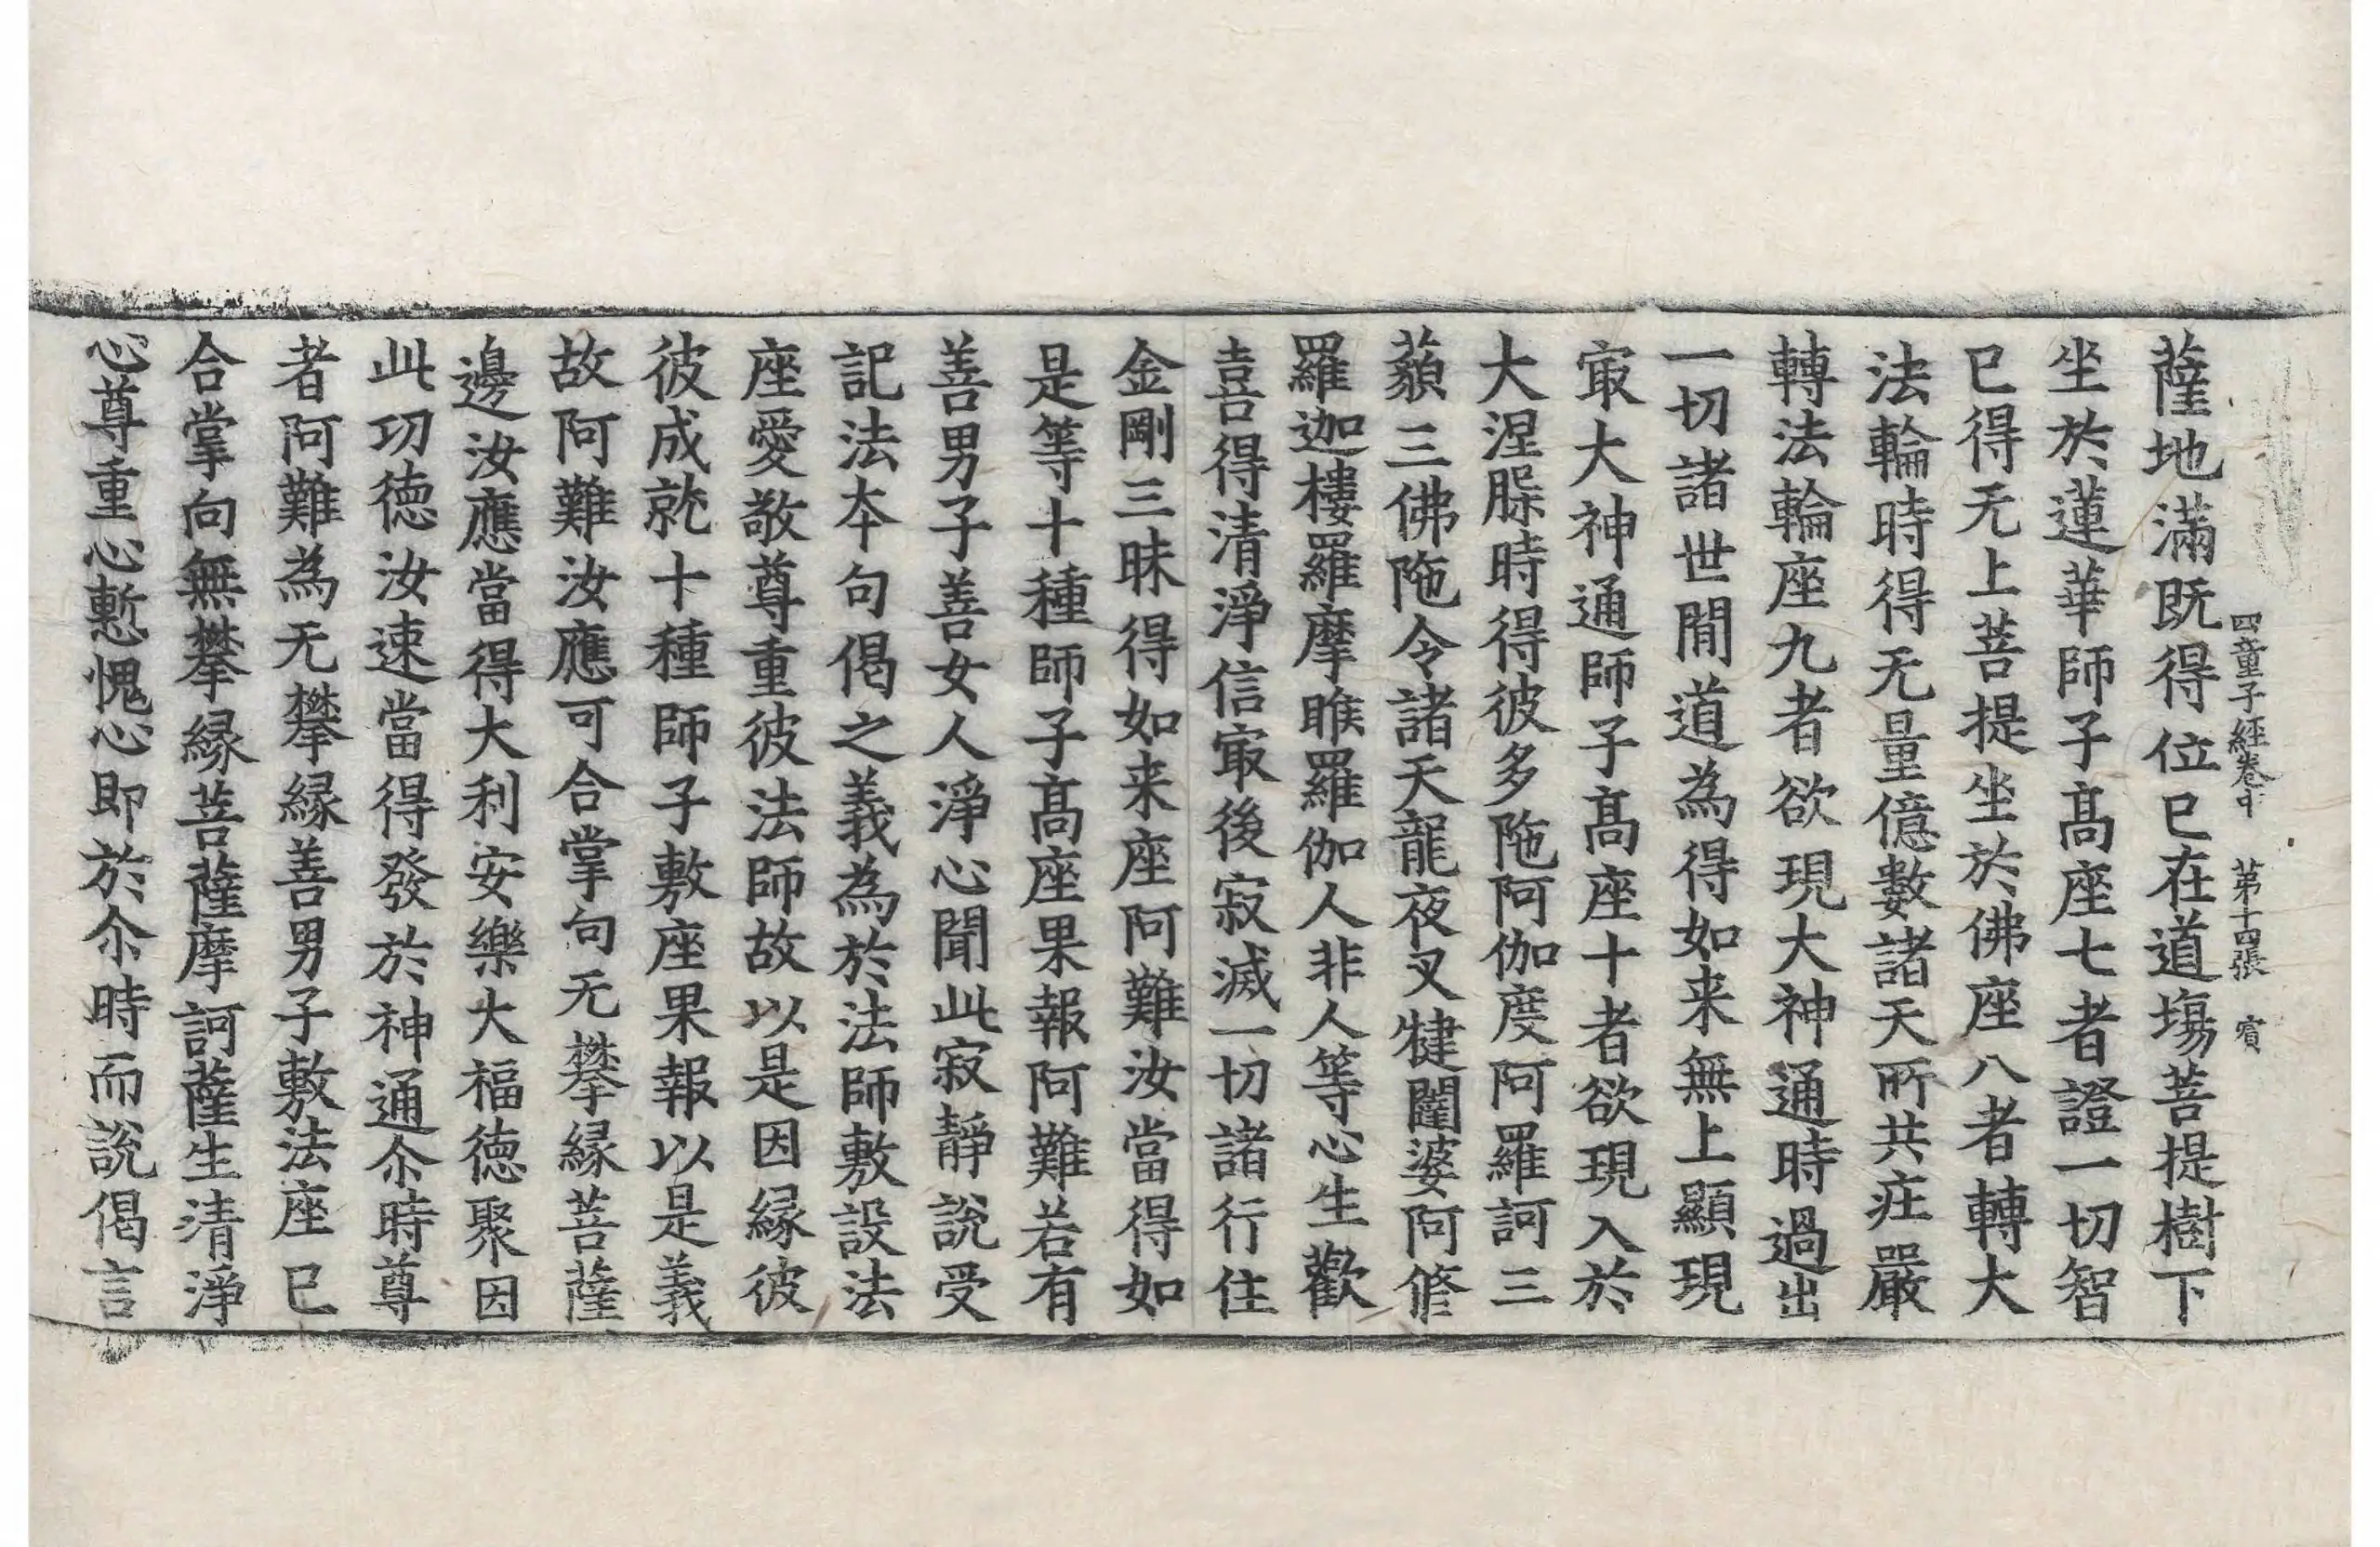 四童子經卷中 第十四張 賓
薩地滿既得位已在道場菩提樹下
坐於蓮華師子髙座七者證一切智
已得无上菩提坐於佛座八者轉大
法輪時得无量億數諸天所共莊嚴
轉法輪座九者欲現大神通時過出
一切諸世閒道為得如来無上顯現
㝡大神通師子髙座十者欲現入於
大涅槃時得彼多陁阿伽度阿羅訶三
藐三佛陁令諸天龍夜叉犍闥婆阿脩
羅迦樓羅摩睺羅伽人非人等心生歡
喜得清淨信㝡後寂滅一切諸行住
金剛三昧得如来座阿難汝當得如
是等十種師子髙座果報阿難若有
善男子善女人淨心聞此寂靜說受
記法夲句偈之義為於法師敷設法
座愛敬尊重彼法師故以是因縁彼
彼成就十種師子敷座果報以是義
故阿難汝應可合掌句无攀縁菩薩
邊汝應當得大利安樂大福徳聚因
此功徳汝速當得發於神通尒時尊
者阿難為无攀縁善男子敷法座已
合掌向無攀縁菩薩摩訶薩生清淨
心尊重心慙愧心即於尒時而說偈言